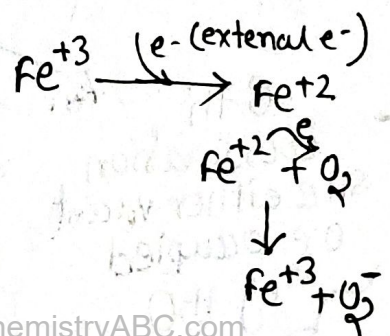 e- (extenal e-)
Fe+3 → Fe+2
e
Fe+2 + O2
↓
Fe+3 + O2-
hemistryABC.com